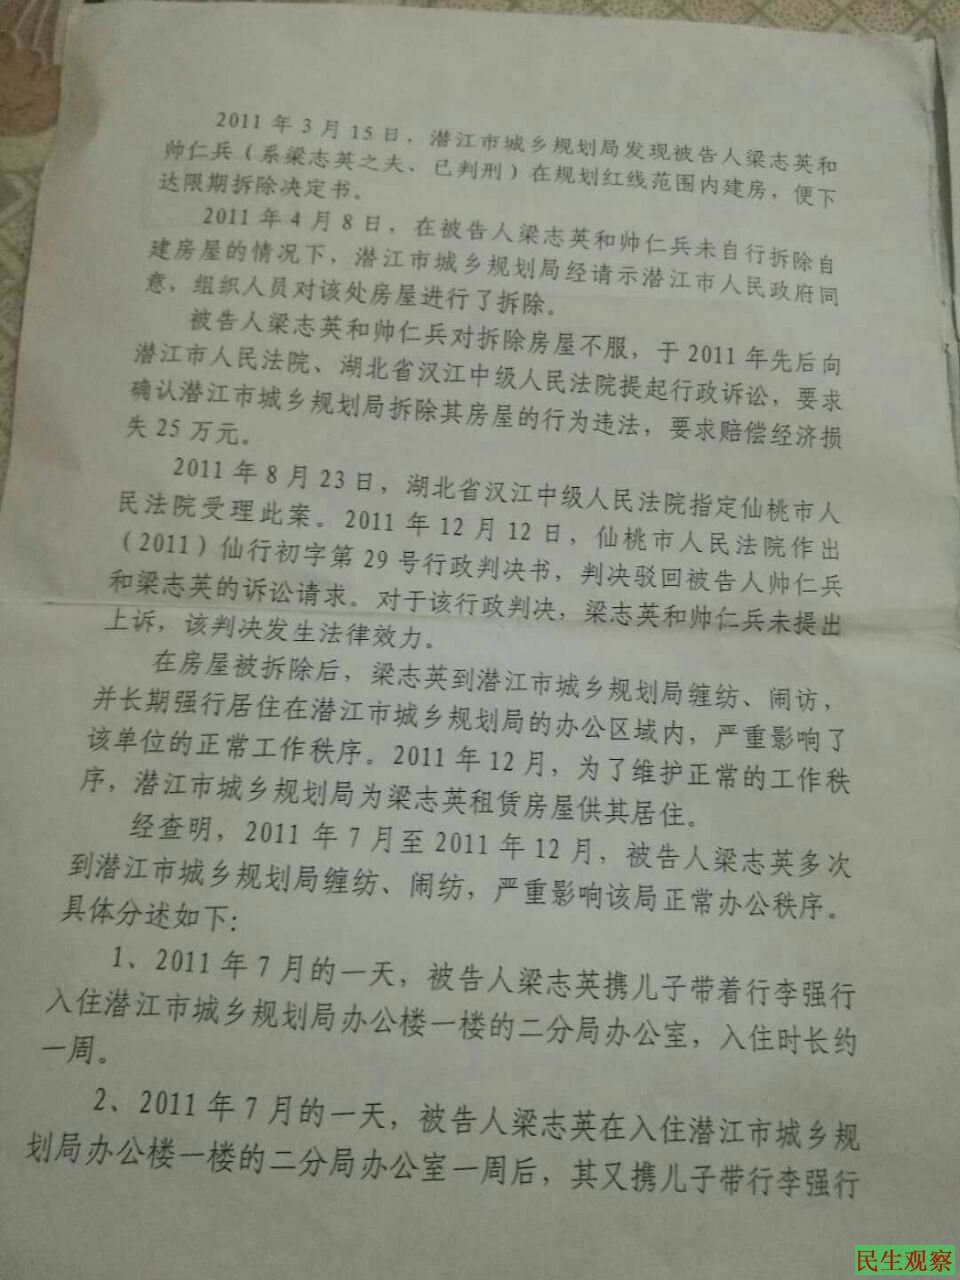 2011年3月15日，潜江市城乡规划局发现被告人梁志英和
帅仁兵（系梁志英之夫、已判刑）在规划红线范围内建房，便下
达限期拆除决定书。
2011年4月8日，在被告人梁志英和帅仁兵未自行拆除自
建房屋的情况下，潜江市城乡规划局经请示潜江市人民政府同
意，组织人员对该处房屋进行了拆除。
被告人梁志英和帅仁兵对拆除房屋不服，于2011年先后向
潜江市人民法院、湖北省汉江中级人民法院提起行政诉讼，要求
确认潜江市城乡规划局拆除其房屋的行为违法，要求赔偿经济损
失25万元。
2011年8月23日，湖北省汉江中级人民法院指定仙桃市人
民法院受理此案。2011年12月12日，仙桃市人民法院作出
（2011）仙行初字第29号行政判决书，判决驳回被告人帅仁兵
和梁志英的诉讼请求。对于该行政判决，梁志英和帅仁兵未提出
上诉，该判决发生法律效力。
在房屋被拆除后，梁志英到潜江市城乡规划局缠纺、闹访，
并长期强行居住在潜江市城乡规划局的办公区域内，严重影响了
该单位的正常工作秩序。2011年12月，为了维护正常的工作秩
序，潜江市城乡规划局为梁志英租赁房屋供其居住。
经查明，2011年7月至2011年12月，被告人梁志英多次
到潜江市城乡规划局缠纺、闹纺，严重影响该局正常办公秩序。
具体分述如下：
1、2011年7月的一天，被告人梁志英携儿子带着行李强行
入住潜江市城乡规划局办公楼一楼的二分局办公室，入住时长约
一周。
2、2011年7月的一天，被告人梁志英在入住潜江市城乡规
划局办公楼一楼的二分局办公室一周后，其又携儿子带行李强行
民生观察